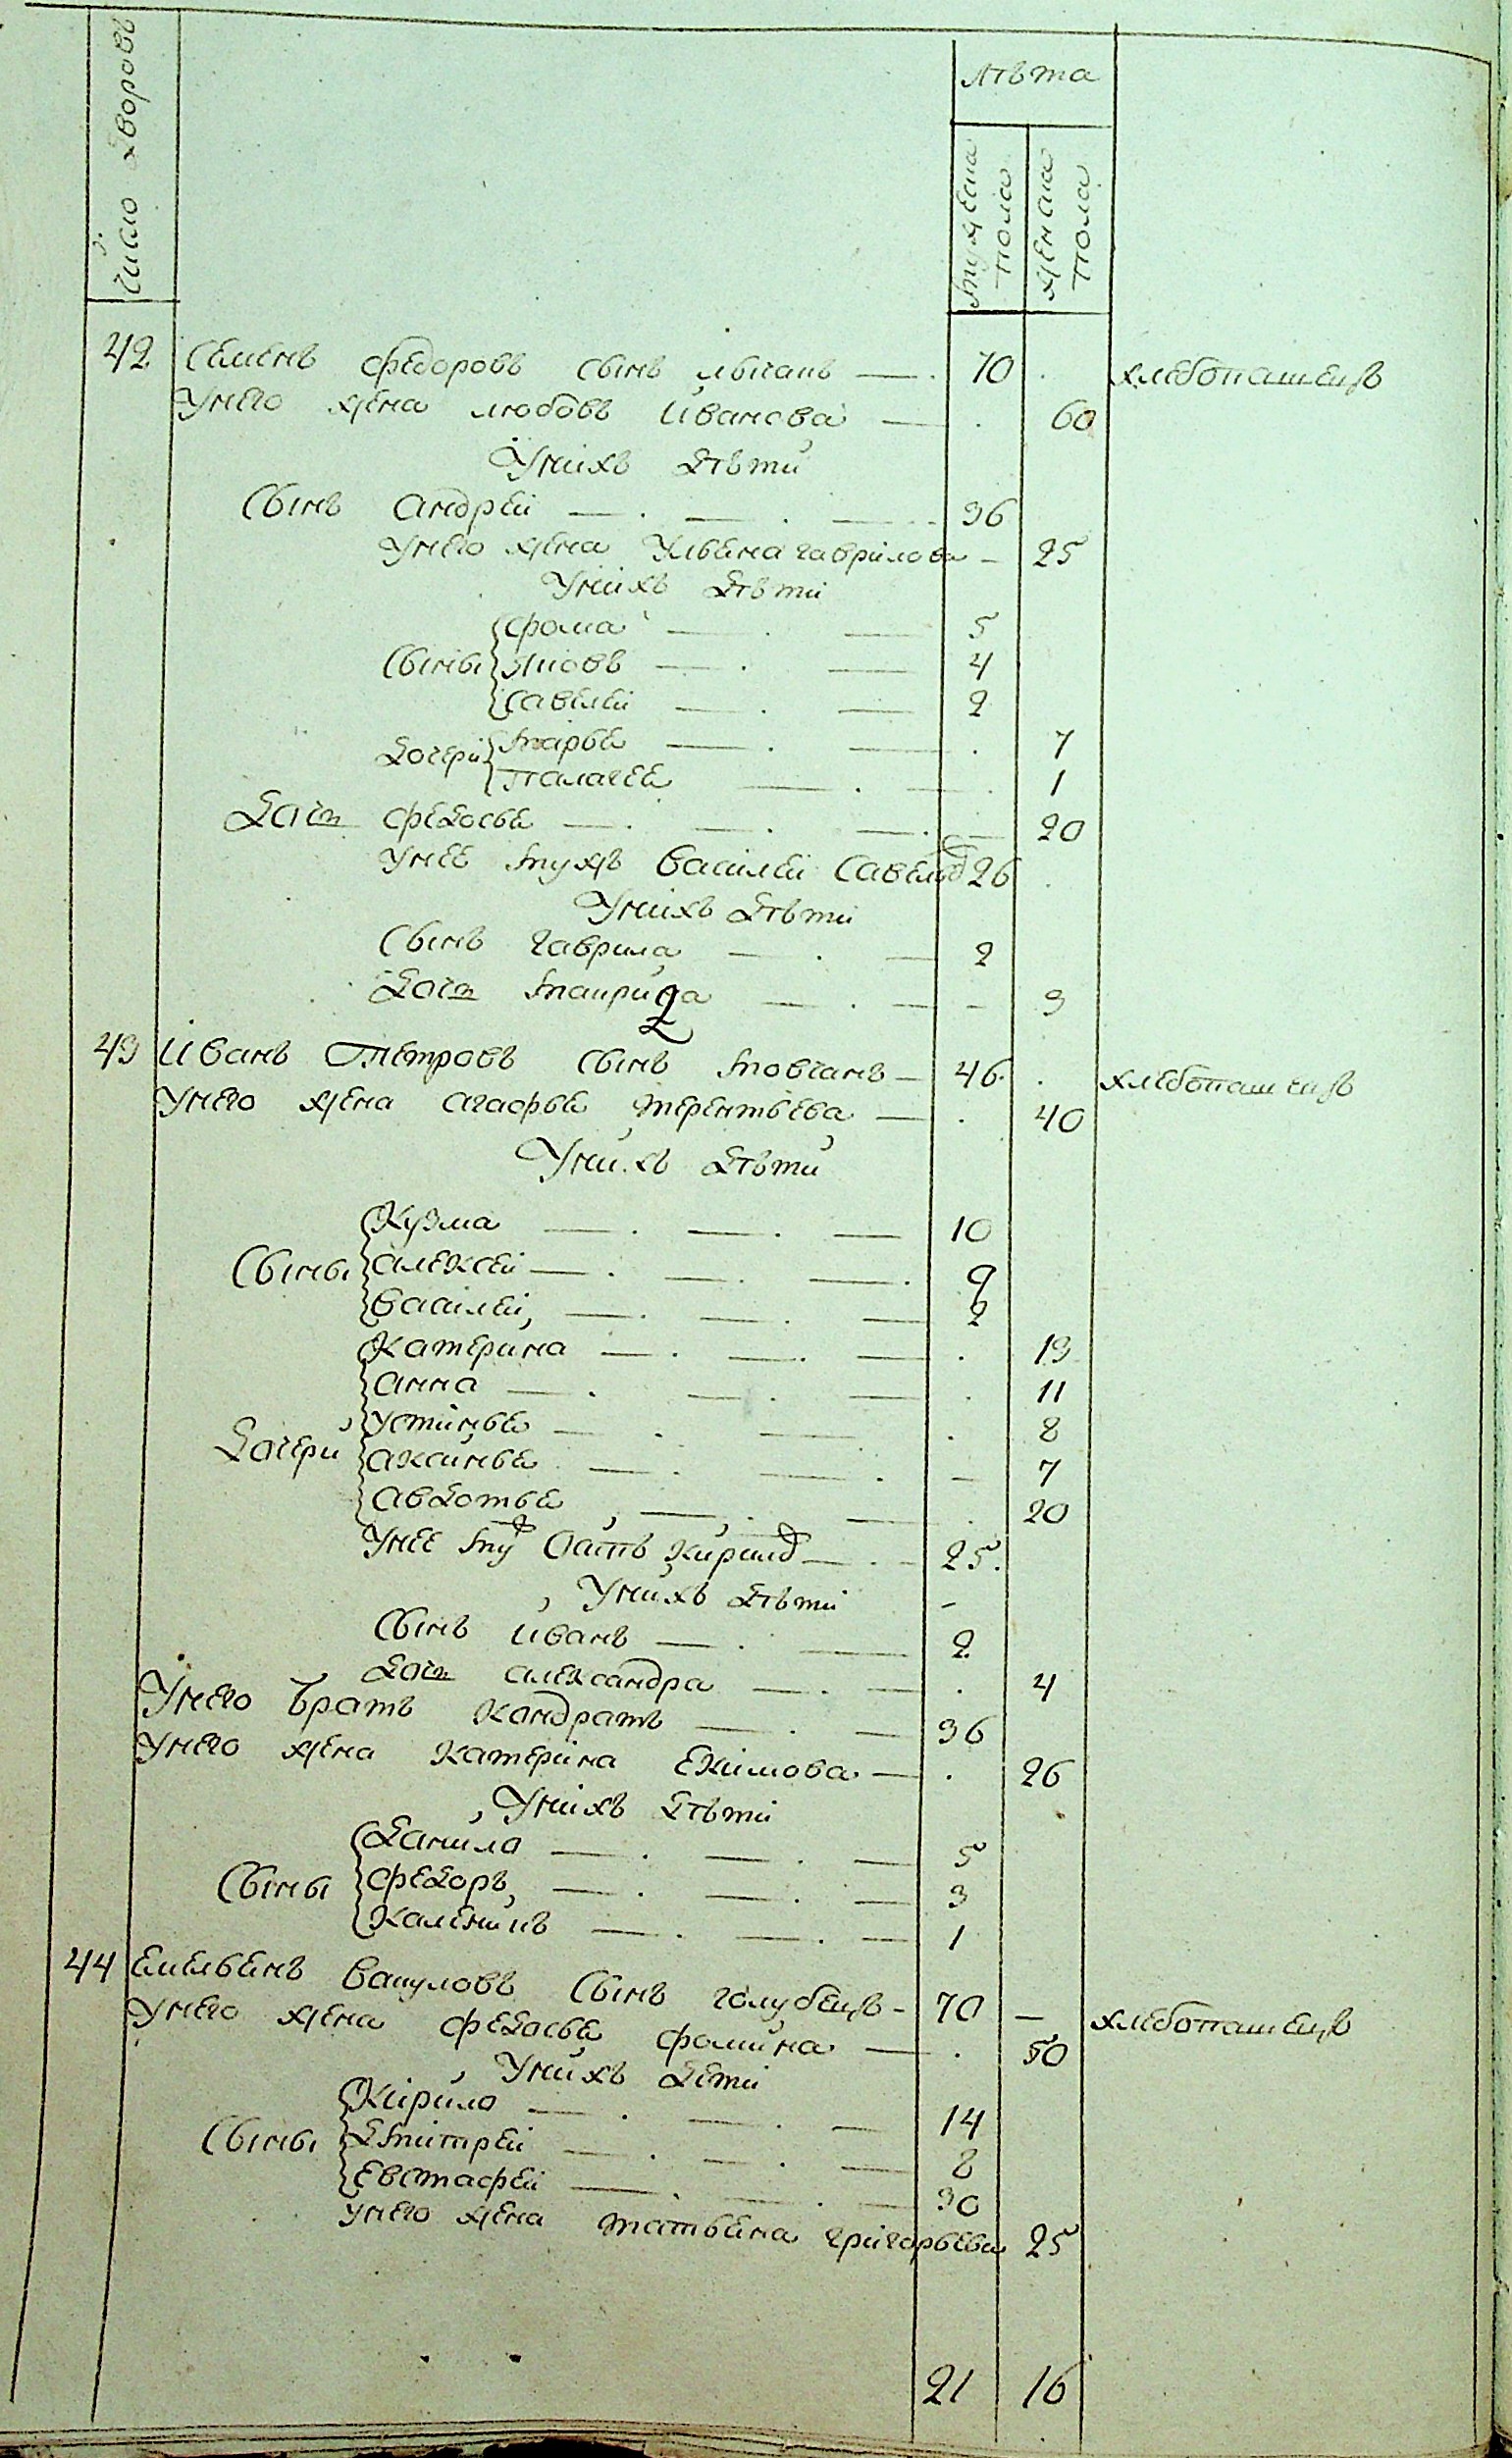 Число дворовъ
лѣта
мужеска пола
женска пола
42 Семенъ федоровъ сынъ лысакъ 70 хлебопашецъ
Унего жена любовь иванова 60
Унихъ дѣти
Сынъ андрей 36
Унего жена Ульяна гаврилова 25
Унихъ дѣти
фома 5
Сыны Яковъ 4
Савелей 2
Дочери Марья 7
Палагея 1
Дочь федосья 20
Унее мужъ василей Савельевъ 26
Унихъ дѣти
Сынъ гаврила 2
Дочь Маприда 3
43 Иванъ Петровъ сынъ Мовчанъ 46 хлебопашецъ
Унего жена агафья терентьева 40
Унихъ дѣти
Кузма 10
Сыны алексей 9
василей 2
Катерина 13
анна 11
устинья 8
Дочери аксинья 7
авдотья 20
Унее му Кирил 25
Унихъ дѣти
Сынъ иванъ 2
Дочь александра 4
Унего братъ Кондратъ 36
Унего жена катерина екимова 26
Унихъ дѣти
Данила 5
Сыны федоръ 3
Каленикъ 1
44 Емельянъ вакуловъ Сынъ голубецъ 70 хлебопашецъ
Унего жена федосья фомина 50
Унихъ дети
Кирило 14
Сыны Дмитрей 8
Евстафей 30
унего жена татьяна григорьева 25
21 16